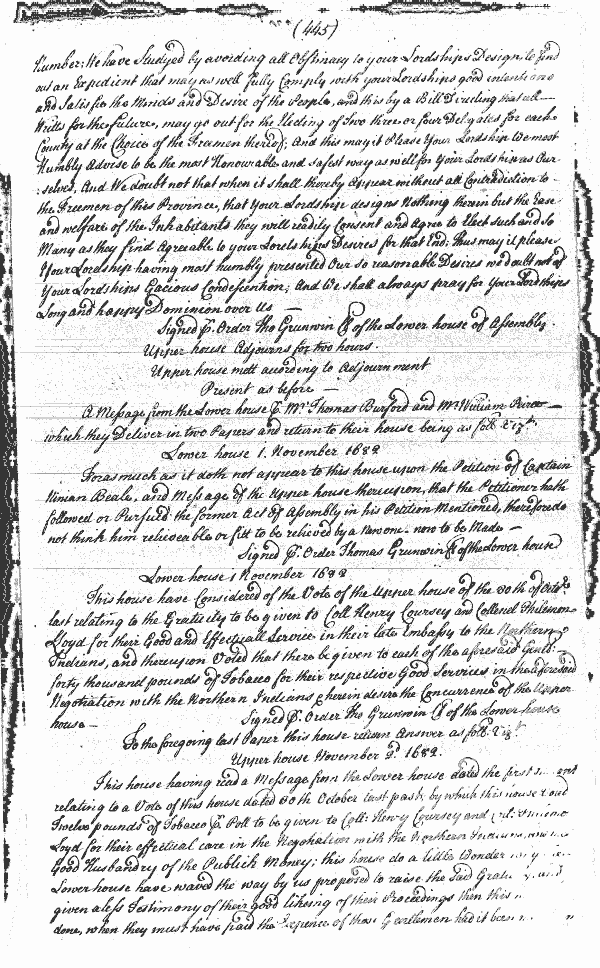 (445)
Number; We have Studyed by avoiding all Obstinacy to your Lordships Design, to find
out an Expedient that may as well fully Comply with your Lordships good intentions
and Satisfie the Minds and Desire of the People, and this by a Bill Directing that all
Writts for the future, may go out for the Electing of Two three or four Delegates for each
County at the Choice of the Freemen thereof; And this may it Please Your Lordship We most
Humbly Advise to be the most Honourable and Safest way as well for Your Lordship as Our
:selves, And We doubt not that when it shall thereby Appear without all Contradiction to
the Freemen of this Province, that Your Lordship designs Nothing herein but the Ease
and welfare of the Inhabitants they will readily Consent and Agree to Elect such and So
Many as they find Agreeable to your Lordships Desires for that End: Thus may it please
Your Lordship having most humbly presented Our so reasonable Desires we doubt not of
Your Lordships Gacious Condescention; And We shall always pray for Your Lordships
Long and happy Dominion over Us
Signed p. Order Tho Grunwin Cl of the Lower house of Assembly.
Upper house Adjourns for two hours.
Upper house mett according to Adjournment
Present as before
A Message from the Lower house p Mr Thomas Burford and Mr William
which they Deliver in two Papers and return to their house being as foll: Vizt.
Lower house 1. November 1682
Forasmuch as it doth not appear to this house upon the Petition of Captain
Ninian Beale, and Message of the Upper house thereupon, that the Petitioner hath
followed or Pursued the former Act of Assembly in his Petition Mentioned, therefore do
not think him relieveable or fitt to be relieved by a New one now to be Made
Signed p. Order Thomas Grunwin Cl of the Lower house
Lower house 1 November 1682
This house have Considered of the Vote of the Upper house of the 30th of Octobr
last relating to the Gratuity to be given to Coll. Henry Coursey and Collonel Philemon
Lloyd for their Good and Effectual Service in their late Embassy to the Northern
Indians, and thereupon Voted that there be given to each of the aforesaid Gentl:
forty thousand pounds of Tobacco for their respective Good Services in the aforesaid
Negotiation with the Northern Indians wherein desire the Concurrence of the Upper
house
Signed p. Order Tho Grunwin Cl of the Lower house
To the foregoing last Paper this house return Answer as foll: Vizt
Upper house November 2d. 1682.
This house having read a Message from the Lower house dated the first and
relating to a Vote of this house dated 30th October last past, by which this house
Twelve pounds of Tobacco p. Poll to be given to Coll: Henry Coursey and
Loyd for their effectual care in the Negotiation with the Northern Indians,
Good Husbandry of the Publick Money; this house do a little Wonder
Lower house have waved the way by us proposed to raise the Said and
given a less Testimony of their good likeing of their Proceedings then this
done, when they must have paid the Expence of those Gentlemen had it been